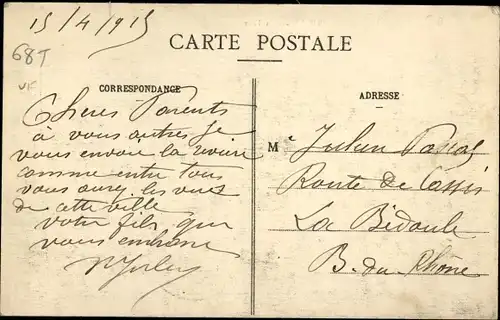 15/4/1915
CARTE POSTALE
68T
VF
CORRESPONDANCE
ADRESSE
Chers Parents
à vous autres je
vous envoie la
comme entre tous
vous aurez les vues
de cette ville
votre fils qui
vous embrasse
Mr Julien Pascal
Route de Cassis
La Bédoule
B. du Rhône